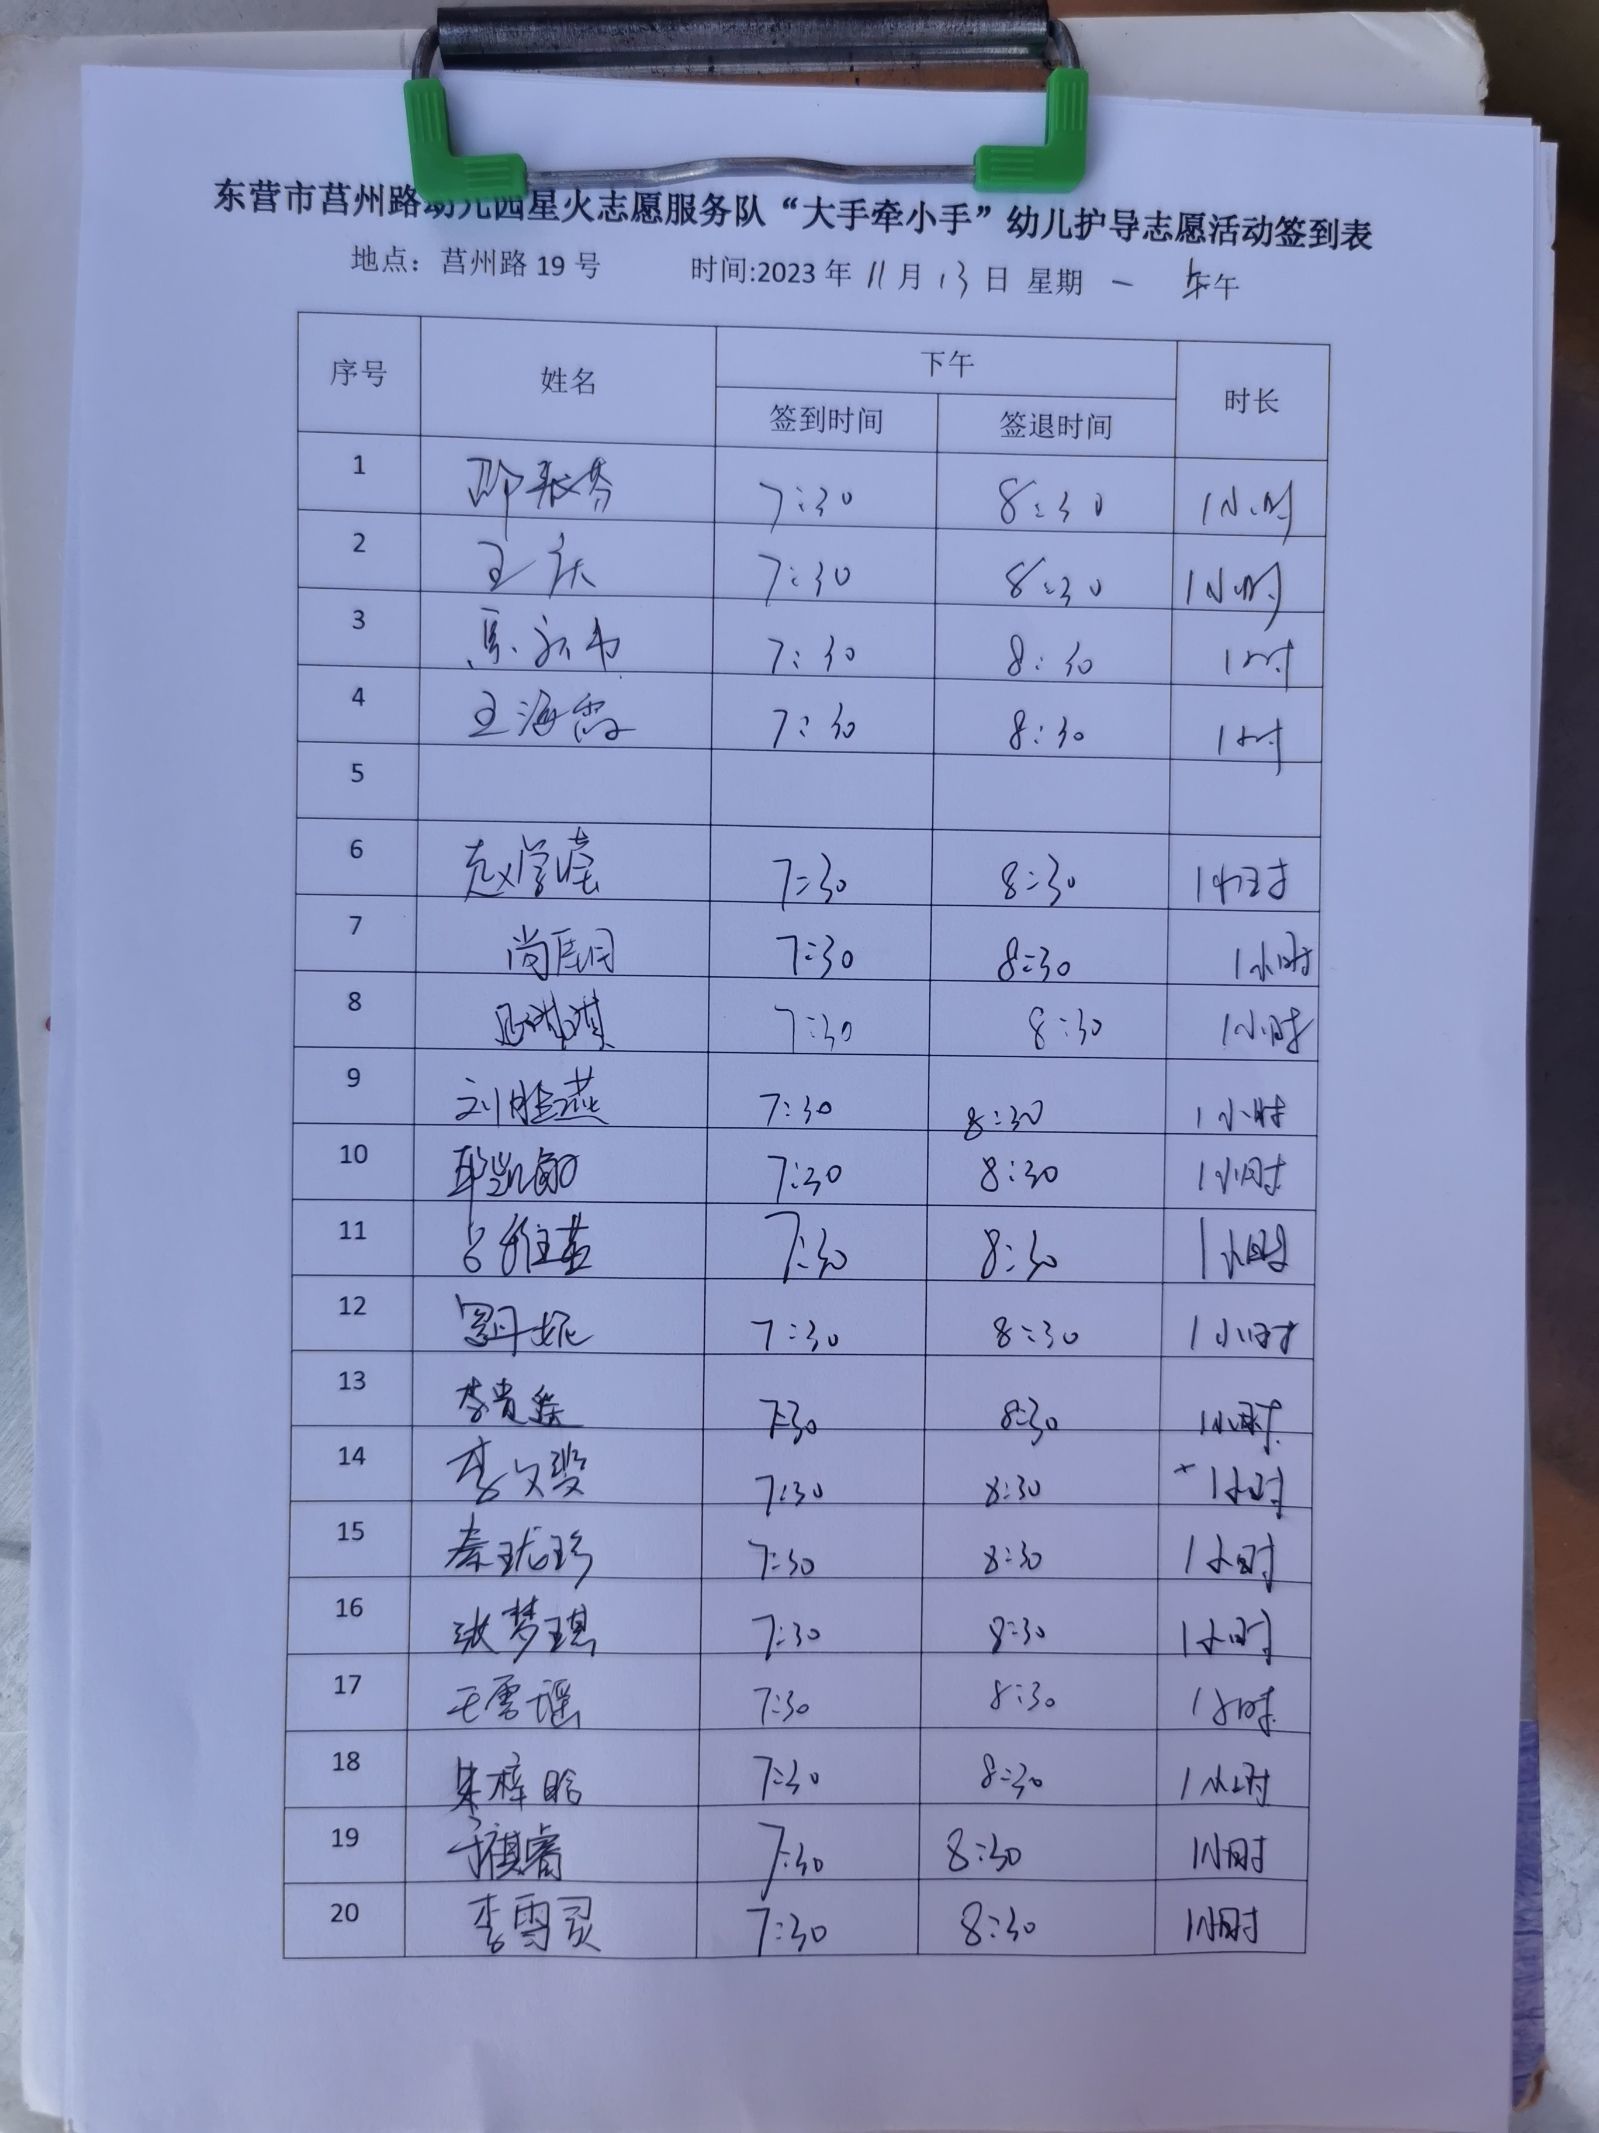 东营市莒州路幼儿园星火志愿服务队“大手牵小手”幼儿护导志愿活动签到表
地点：莒州路 19 号 时间:2023 年 11 月 13 日 星期 一 午
序号 姓名 下午 时长
签到时间 签退时间
1 7:30 8:30 1小时
2 王庆 7:30 8:30 1小时
3 7:30 8:30 1小时
4 王海霞 7:30 8:30 1小时
5
6 赵学莹 7:30 8:30 1小时
7 尚 7:30 8:30 1小时
8 琪琪 7:30 8:30 1小时
9 刘胜燕 7:30 8:30 1小时
10 凯敏 7:30 8:30 1小时
11 7:30 8:30 1小时
12 丹妮 7:30 8:30 1小时
13 李贵 7:30 8:30 1小时
14 李文 7:30 8:30 1小时
15 秦珑珍 7:30 8:30 1小时
16 张梦琪 7:30 8:30 1小时
17 王雪瑶 7:30 8:30 1小时
18 朱梓晗 7:30 8:30 1小时
19 于祺睿 7:30 8:30 1小时
20 李雪灵 7:30 8:30 1小时